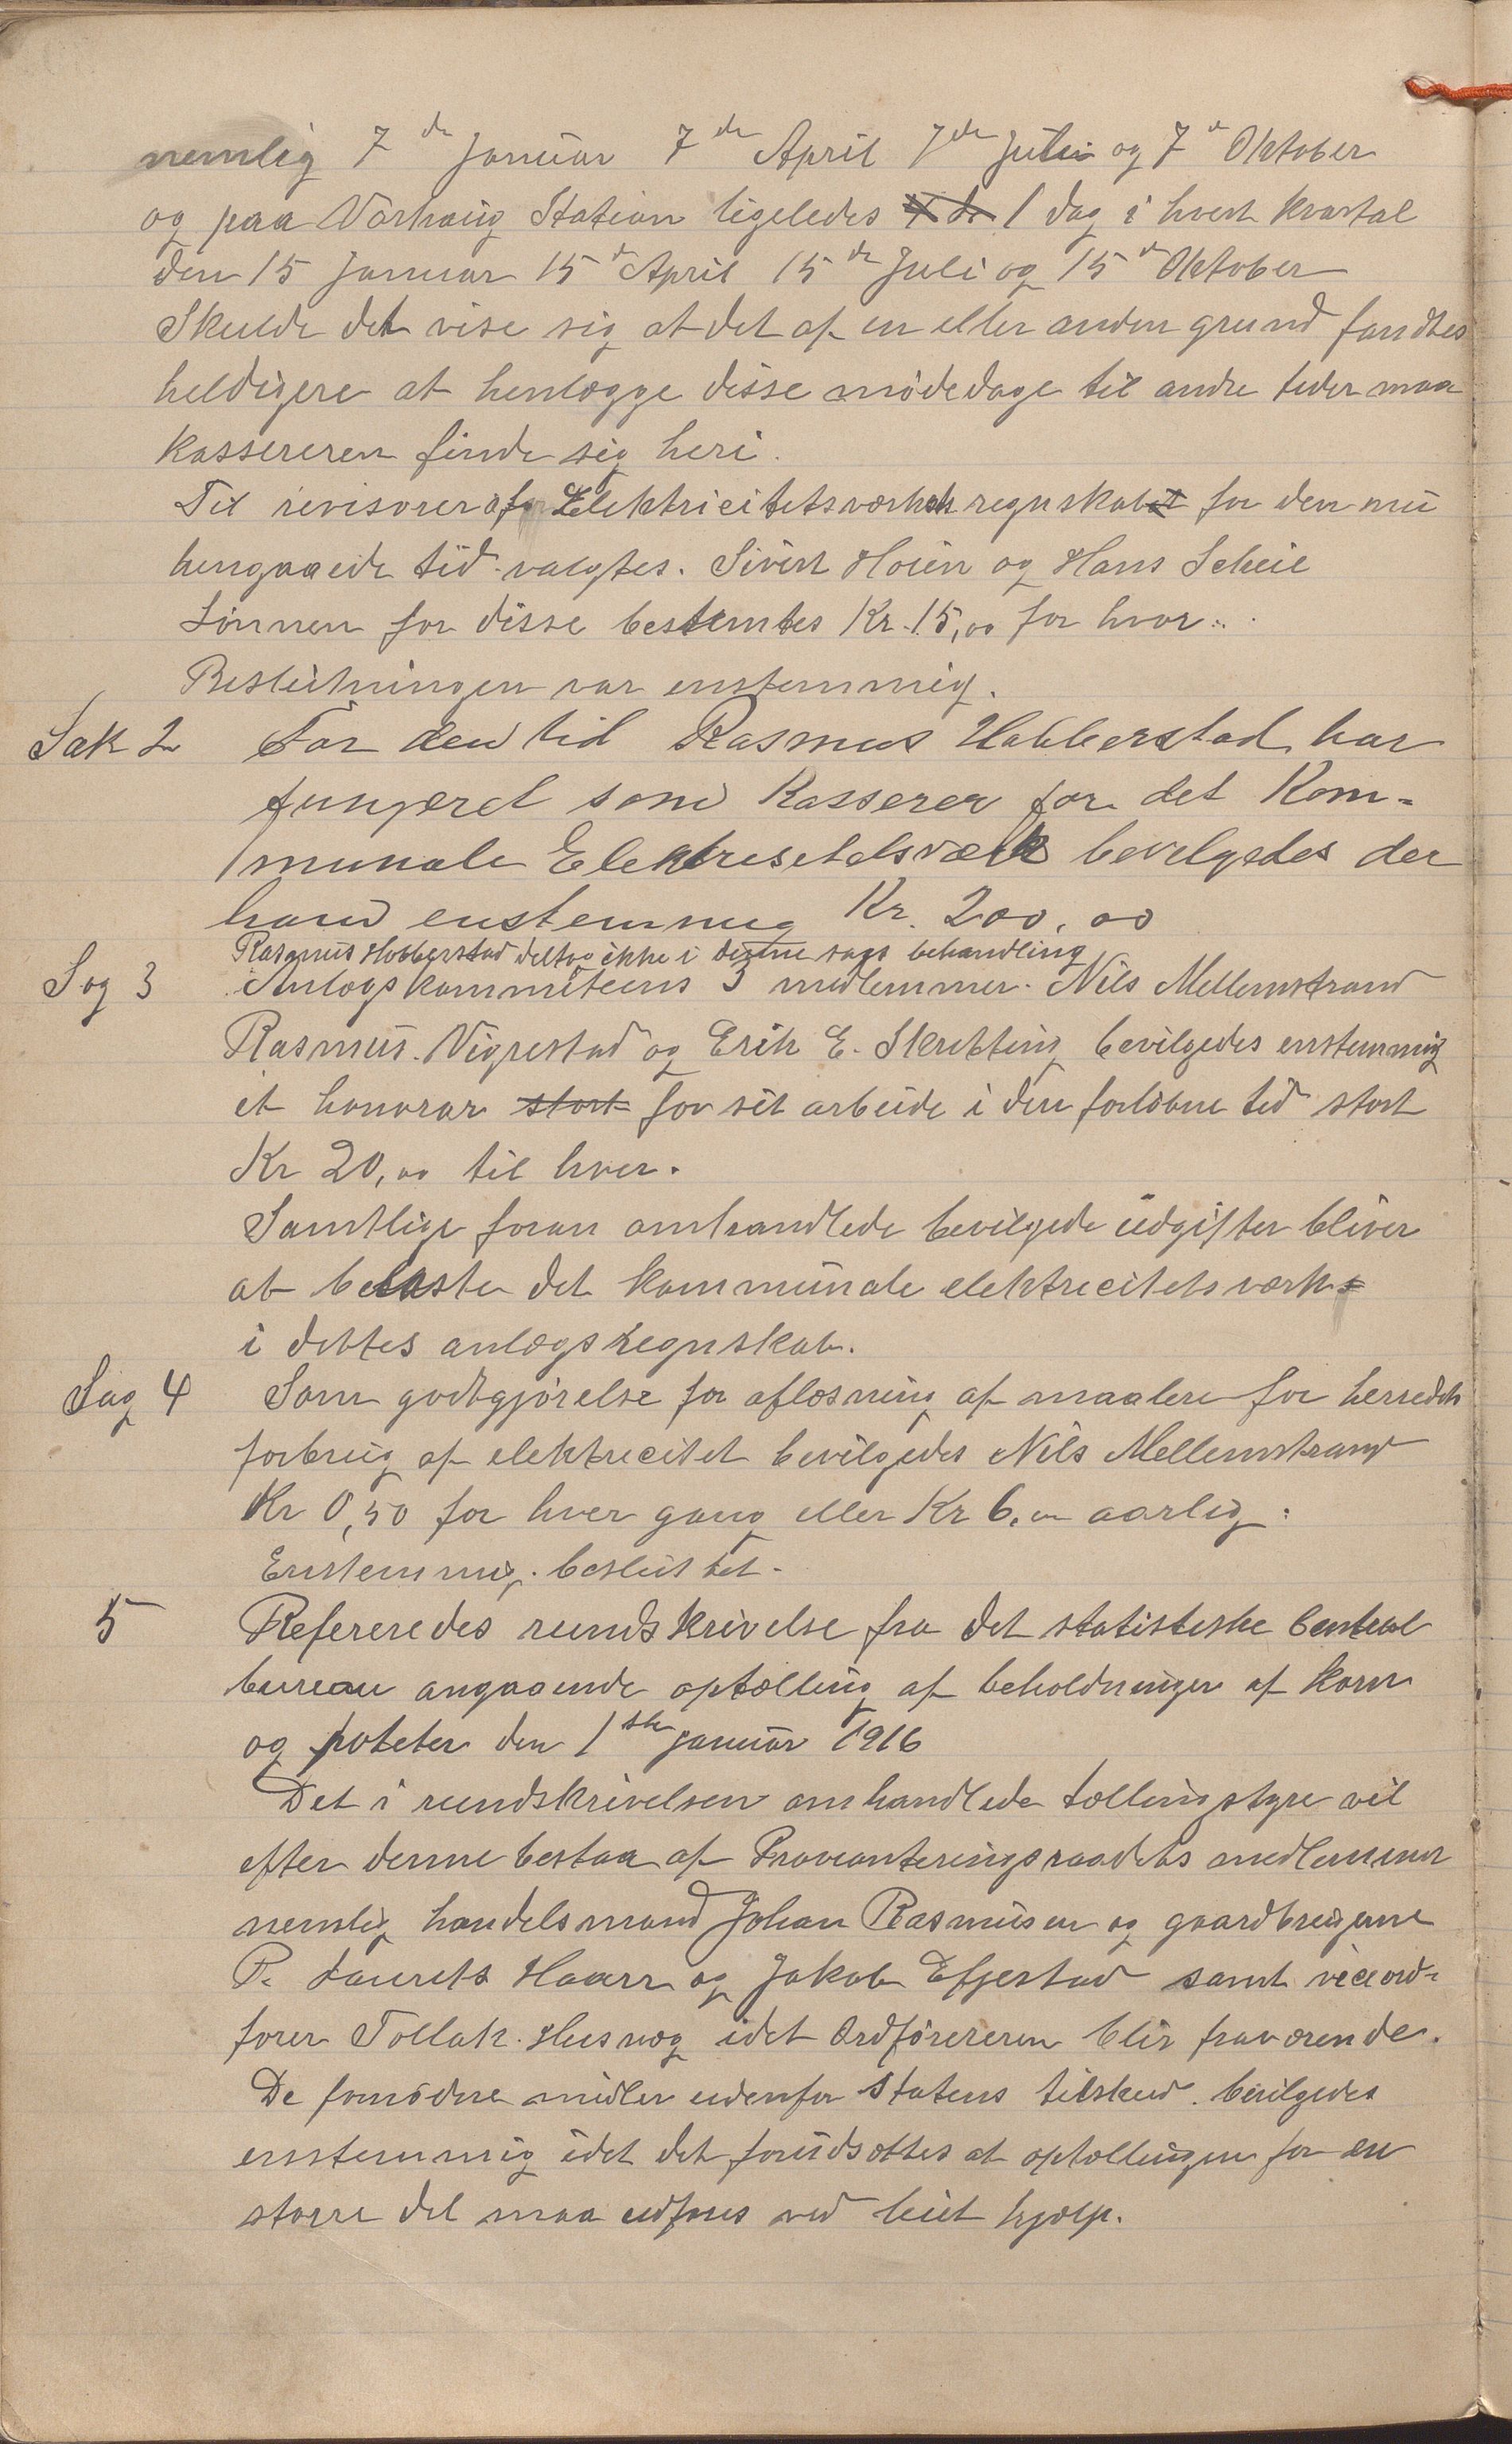 nemlig 7de Januar 7de April 7de Juli og 7de Oktober
og paa Varhaug Station ligeledes 1 dag i hvert kvartal
den 15 Januar 15de April 15de Juli og 15de Oktober
Skulde det vise sig at det af en eller anden grund fandtes
heldigere at henlægge disse mødedage til andre tider maa
kassereren finde sig heri.
Til revisorer af Elektricitetsværkets regnskab for den nu
hengaaede tid valgtes. Sivert Høien og Hans Scheie
Lønnen for disse bestemtes Kr. 15,00 for hver.
Beslutningen var enstemmig.
Sak 2 For den tid Rasmus Hobberstad har
fungeret som Kasserer for det Kom-
munale Elektresetetsværk bevelgedes der
ham enstemmig Kr. 200,00
Rasmus Hobberstad deltog ikke i denne sags behandling
Sag 3 Anlægskommiteens 3 medlemmer. Nils Mellemstrand
Rasmus Vigrestad og Erik E. Skretting bevilgedes enstemmig
et honorar stort for sit arbeide i den forløbne tid stort
Kr 20,00 til hver.
Samtlige foran omhandlede bevilgede udgifter bliver
at belaste det kommunale elektricitetsværk
i dettes anlægsregnskab.
Sag 4 Som godtgjørelse for aflæsning af maalere for herredets
forbrug af elektricitet bevilgedes Nils Mellemstrand
Kr 0,50 for hver gang eller Kr 6,00 aarlig.
Enstemmig besluttet.
5 Refereredes rundskrivelse fra det statistiske Central
bureau angaaende optælling af beholdninger af korn
og poteter den 1ste Januar 1916
Det i rundskrivelsen omhandlede tællingstyre vil
efter denne bestaa af Provianteringsraadets medlemmer
nemlig handelsmand Johan Rasmusen og gaardbrugerne
R. Laurits Haarr og Jakob Efjestad samt viceord-
fører Tollak Husvæg idet Ordførereren blir fraværende.
De fornødne midler udenfor Statens tilskud bevilgedes
enstemmig idet det forudsættes at optællingen for en
større del maa udføres ved leiet hjælp.